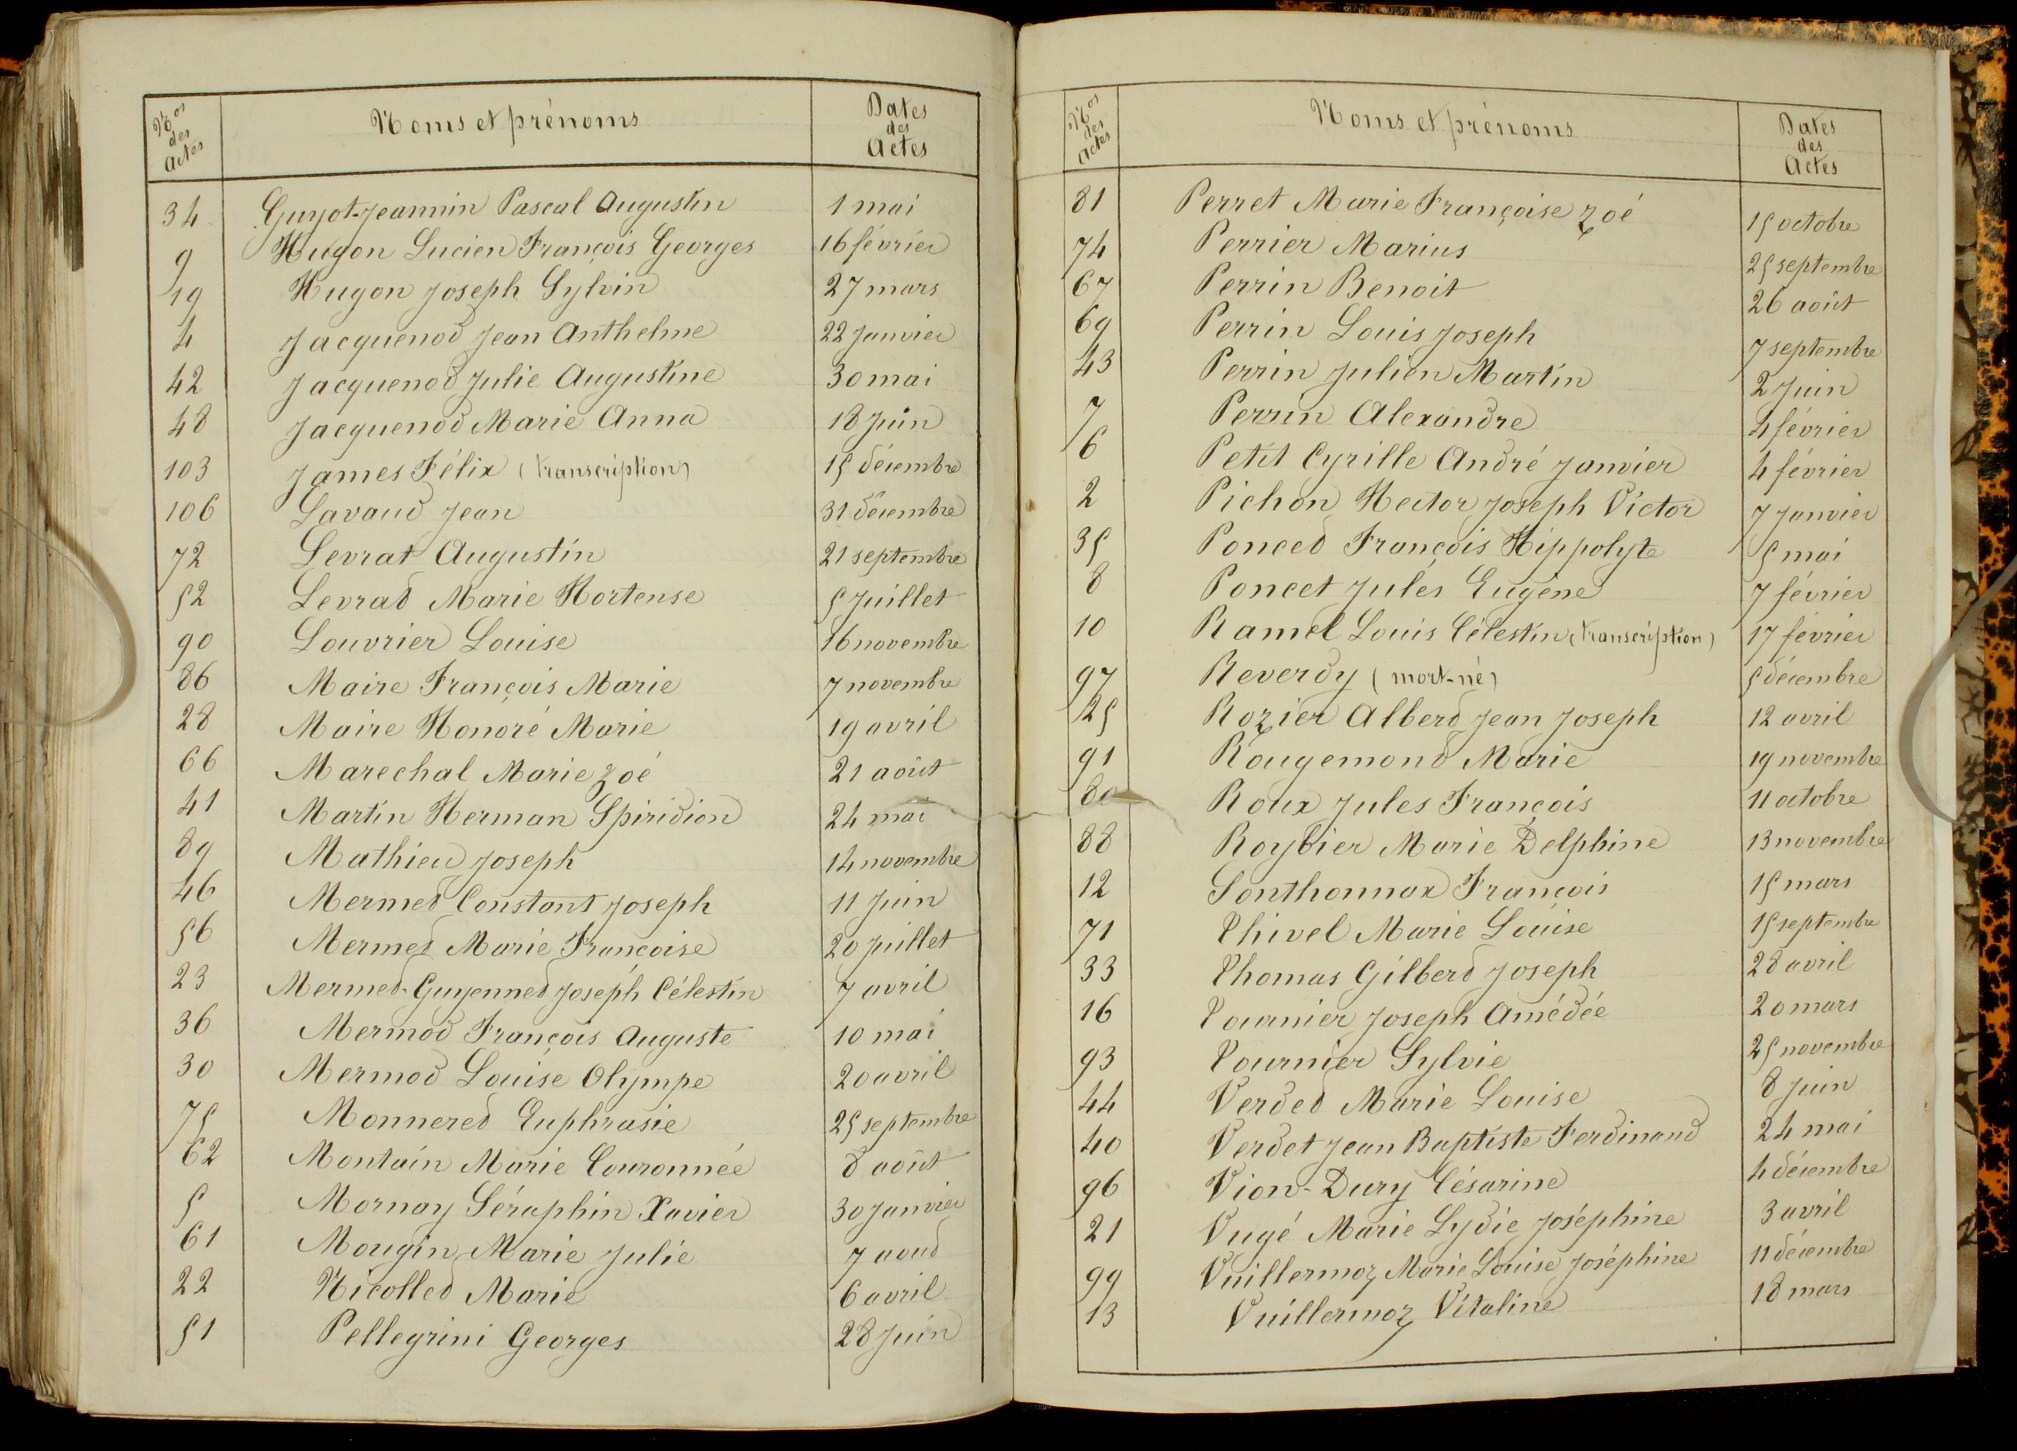 Nos des Actes Noms et prénoms Dates des Actes
34 Guyot-Jeannin Pascal Augustin 1 mai
9 Hugon Lucien François Georges 16 février
19 Hugon Joseph Sylvin 27 mars
4 Jacquenod Jean Anthelme 22 Janvier
42 Jacquenod Julie Augustine 30 mai
48 Jacquenod Marie Anna 18 Juin
103 James Félix (transcription) 15 décembre
106 Lavaud Jean 31 décembre
72 Levrat Augustin 21 septembre
52 Levrat Marie Hortense 5 Juillet
90 Louvrier Louise 16 novembre
86 Maire François Marie 7 novembre
28 Maire Honoré Marie 19 avril
66 Marechal Marie Zoé 21 août
41 Martin Herman Spiridion 24 mai
89 Mathieu Joseph 14 novembre
46 Mermet Constant Joseph 11 Juin
56 Mermet Marie Françoise 20 Juillet
23 Mermet-Guyennet Joseph Célestin 7 avril
36 Mermod François Auguste 10 mai
30 Mermod Louise Olympe 20 avril
75 Monneret Euphrasie 25 septembre
62 Montain Marie Couronnée 8 août
5 Mornay Séraphin Xavier 30 Janvier
61 Mougin Marie Julie 7 aout
22 Nicollet Marie 6 avril
51 Pellegrini Georges 28 Juin
Nos des Actes Noms et prénoms Dates des Actes
81 Perret Marie Françoise Zoé 15 octobre
74 Perrier Marius 25 septembre
67 Perrin Benoit 26 août
69 Perrin Louis Joseph 7 septembre
43 Perrin Julien Martin 2 Juin
7 Perrin Alexandre 4 février
6 Petit Cyrille André Janvier 4 février
2 Pichon Hector Joseph Victor 7 Janvier
35 Poncet François Hippolyte 5 mai
8 Poncet Jules Eugène 7 février
10 Ramel Louis Célestin (transcription) 17 février
97 Reverdy (mort-né) 5 décembre
25 Rozier Albert Jean Joseph 12 avril
91 Rougemond Marie 19 novembre
80 Roux Jules François 11 octobre
88 Roybier Marie Delphine 13 novembre
12 Sonthonnax François 15 mars
71 Thivel Marie Louise 15 septembre
33 Thomas Gilbert Joseph 28 avril
16 Tournier Joseph Amédée 20 mars
93 Tournier Sylvie 25 novembre
44 Verdet Marie Louise 8 Juin
40 Verdet Jean Baptiste Ferdinand 24 mai
96 Vion-Dury Césarine 4 décembre
21 Vugé Marie Lydie Joséphine 3 avril
99 Vuillermoz Marie Louise Joséphine 11 décembre
13 Vuillermoz Vitaline 18 mars